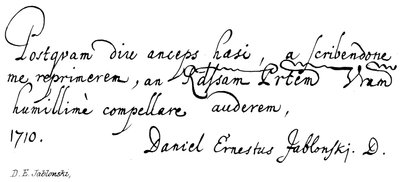 Postquam diu anceps hæsi, a scribendone
me reprimerem, an Rdssam Prtem Vram
humillimè compellare auderem,
1710. Daniel Ernestus Jablonskj. D.
D. E. Jablonski,